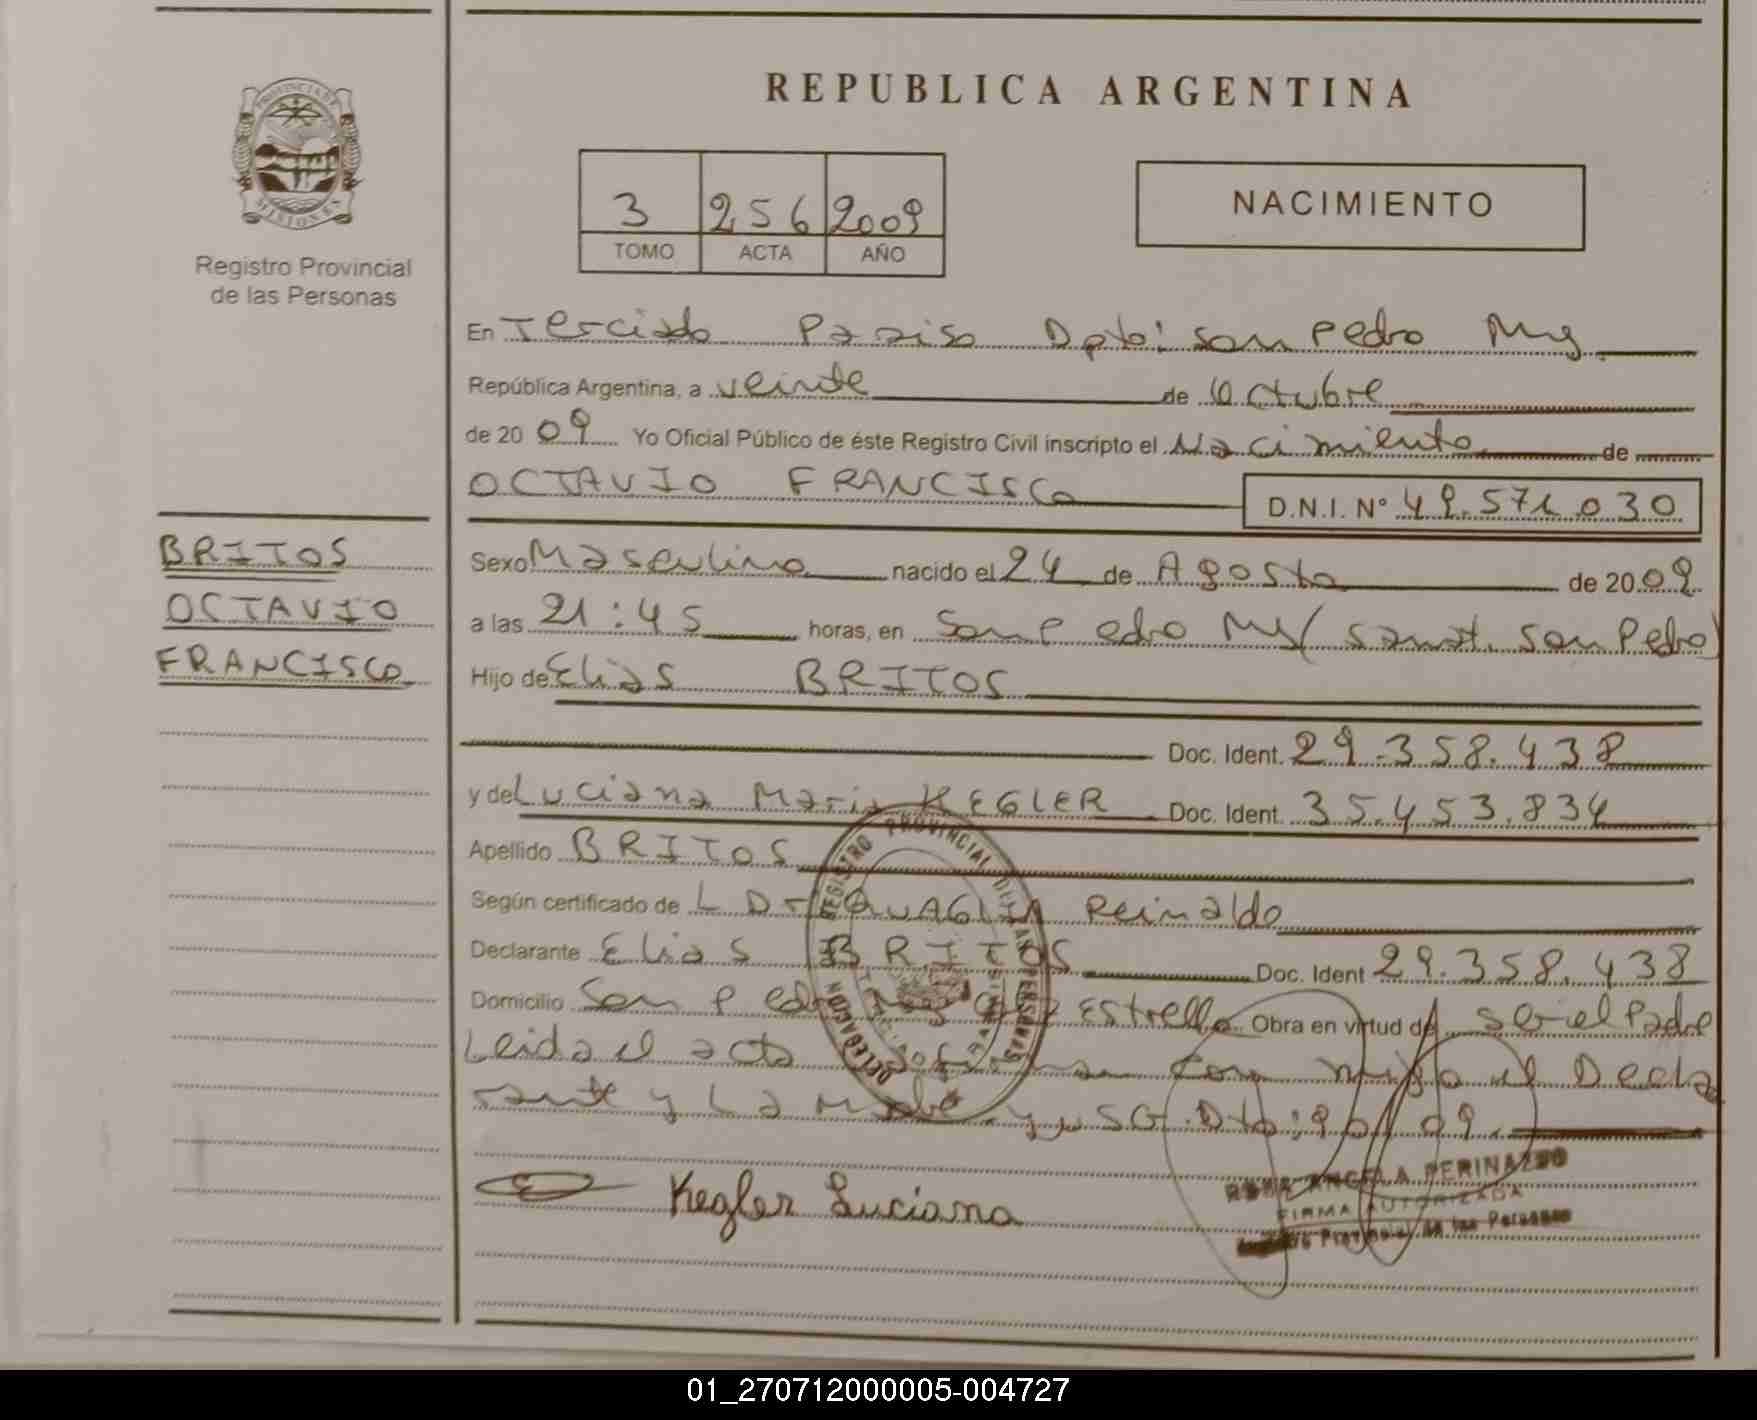 REPUBLICA ARGENTINA
PROVINCIA DE
MISIONES
Registro Provincial
de las Personas
3 256 2009
TOMO ACTA AÑO
NACIMIENTO
En Terciado Paraiso Dpto: San Pedro Mns
República Argentina, a veinte de Octubre
de 20 09 Yo Oficial Público de éste Registro Civil inscripto el Nacimiento de
OCTAVIO FRANCISCO D.N.I. Nº 49.571.030
BRITOS
OCTAVIO
FRANCISCO
Sexo Masculino nacido el 24 de Agosto de 20 09
a las 21:45 horas, en San Pedro Mns (Sanat. San Pedro)
Hijo de Elias BRITOS
Doc. Ident. 29.358.438
y de Luciana Maria KEGLER Doc. Ident. 35.453.834
Apellido BRITOS
Según certificado de Reinaldo
Declarante Elias BRITOS Doc. Ident 29.358.438
Domicilio San Pedro Estrella Obra en virtud de ser el Padre
Leida el acta conmigo el Decla
rante y La Madre
REGISTRO PROVINCIAL DE LAS PERSONAS
DELEGACION
Kegler Luciana
ROSA ANGELA PERINAZZO
FIRMA AUTORIZADA
Registro Provincial de las Personas
01_270712000005-004727